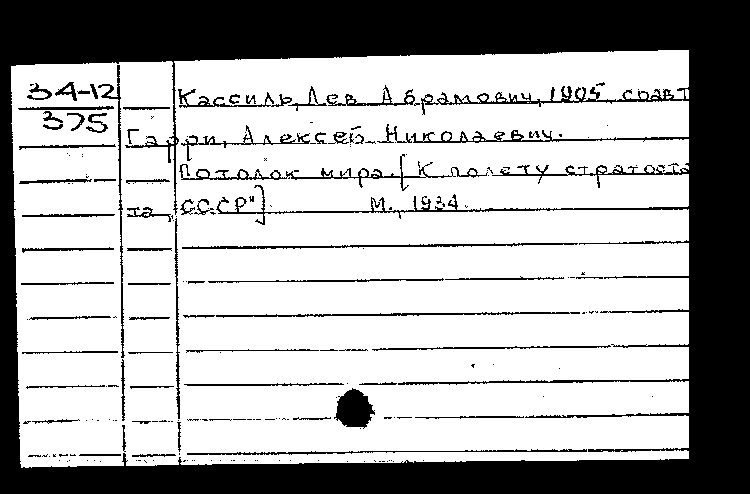 34-12
375
Кассиль, Лев Абрамович, 1905 соавт
Гарри, Алексей Николаевич.
Потолок мира. [К полету стратоста
та „СССР"] М., 1934.